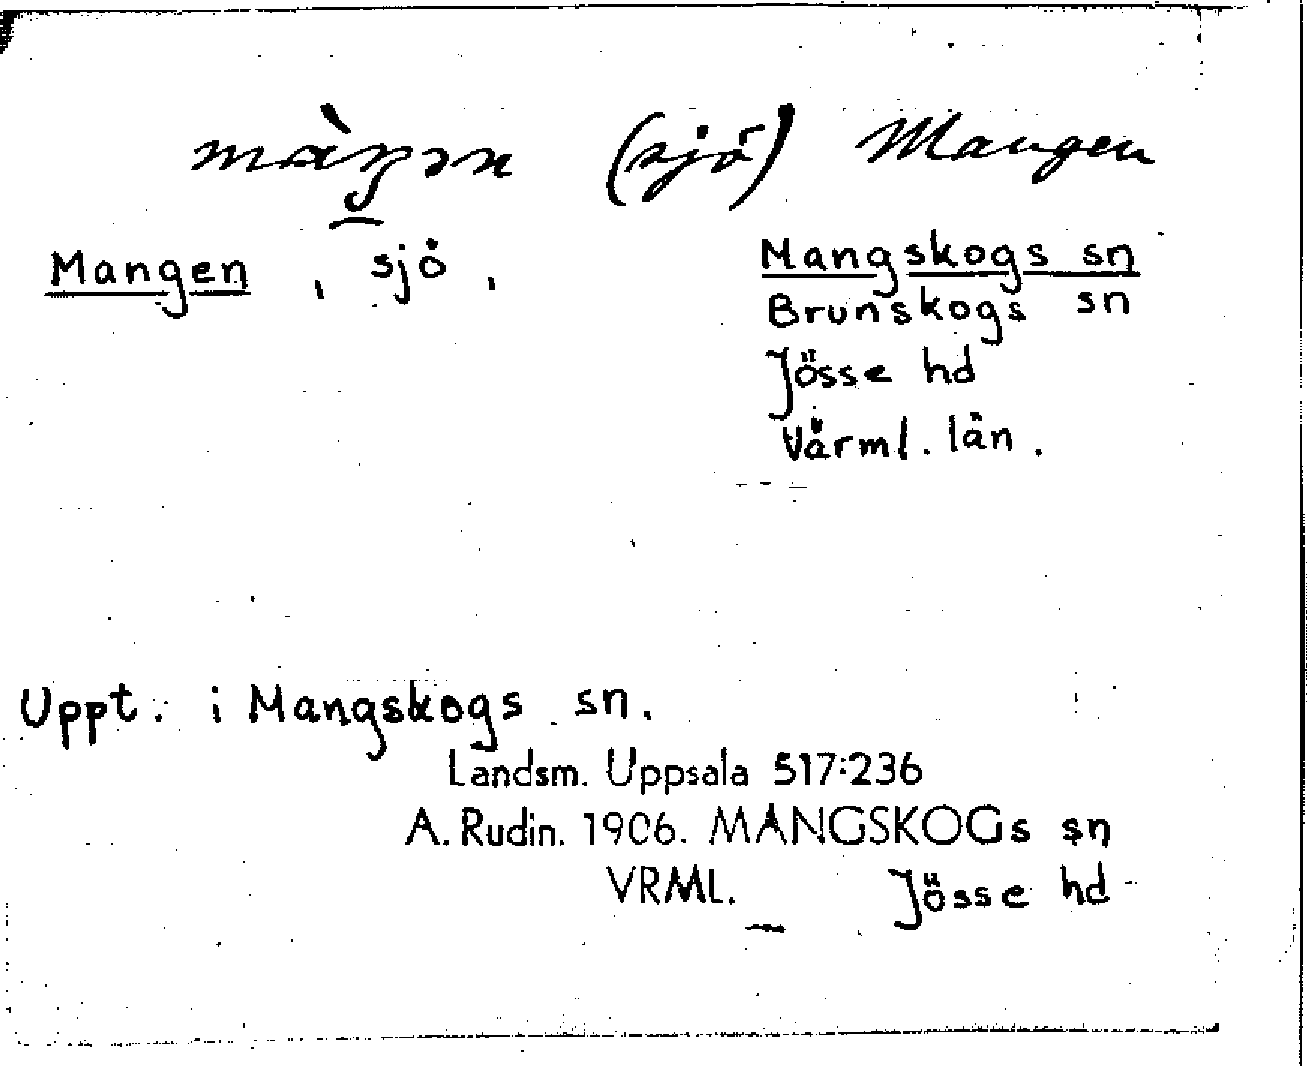 (sjö) Mangen
Mangen, sjö,
Mangskogs sn
Brunskogs sn
Jösse hd
Värml. län.
Uppt. i Mangskogs sn.
Landsm. Uppsala 517:236
A. Rudin. 1906. MANGSKOGs sn
VRML. Jösse hd